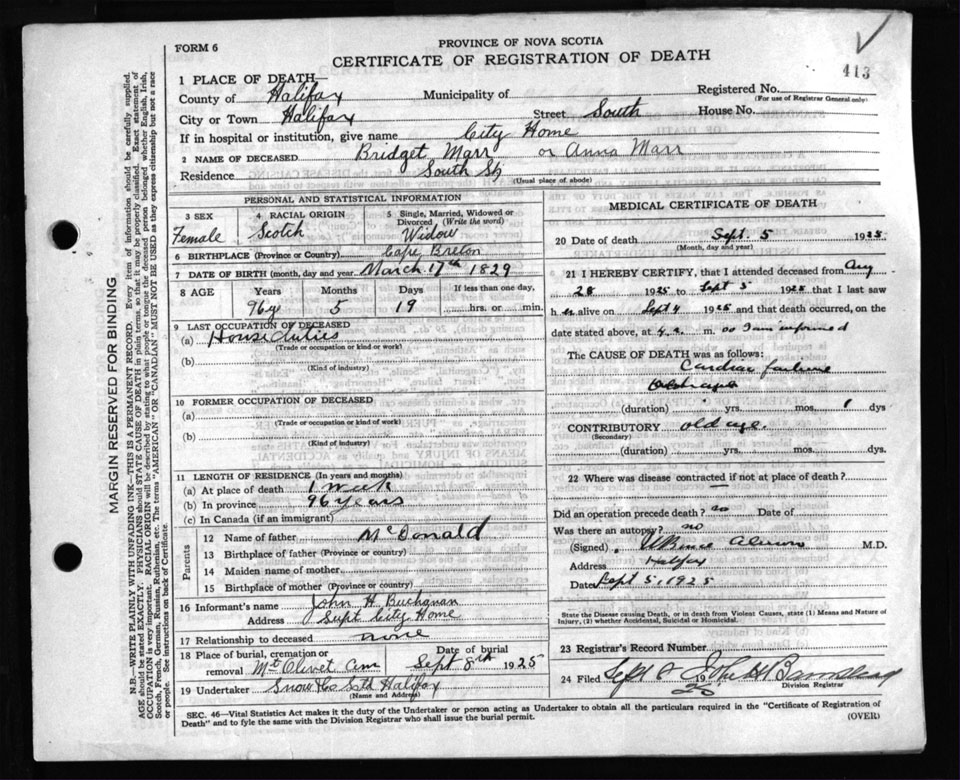 FORM 6
PROVINCE OF NOVA SCOTIA
CERTIFICATE OF REGISTRATION OF DEATH
413
1 PLACE OF DEATH—
County of Halifax Municipality of Registered No.
(For use of Registrar General only)
City or Town Halifax Street South House No.
If in hospital or institution, give name City Home
2 NAME OF DECEASED Bridget Marr or Anna Marr
Residence South St
(Usual place of abode)
PERSONAL AND STATISTICAL INFORMATION
3 SEX 4 RACIAL ORIGIN 5 Single, Married, Widowed or Divorced (Write the word)
Female Scotch Widow
6 BIRTHPLACE (Province or Country) Cape Breton
7 DATE OF BIRTH (month, day and year March 17th 1829
8 AGE Years Months Days If less than one day,
96 5 19 hrs. or min.
9 LAST OCCUPATION OF DECEASED
(a) House duties
(Trade or occupation or kind or work)
(b)
(Kind of industry)
10 FORMER OCCUPATION OF DECEASED
(a)
(Trade or occupation or kind of work)
(b)
(Kind of industry)
11 LENGTH OF RESIDENCE (In years and months)
(a) At place of death 1 Week
(b) In province 96 years
(c) In Canada (if an immigrant)
Parents
12 Name of father McDonald
13 Birthplace of father (Province or country)
14 Maiden name of mother
15 Birthplace of mother (Province or country)
16 Informant's name John H Buchanan
Address Supt City Home
17 Relationship to deceased none
18 Place of burial, cremation or removal Mt Olivet Cem Date of burial Sept 8th 1925
19 Undertaker Snow & Co Ltd Halifax
(Name and Address)
MEDICAL CERTIFICATE OF DEATH
20 Date of death Sept. 5 1925
(Month, day and year)
21 I HEREBY CERTIFY, that I attended deceased from Aug
28 1925 to Sept 5 1925 that I last saw
h er alive on Sept 4 1925 and that death occurred, on the
date stated above, at 4 a. m. as I am informed
The CAUSE OF DEATH was as follows:
Cardiac failure
(duration) yrs. mos. 1 dys
CONTRIBUTORY old age.
(Secondary)
(duration) yrs. mos. dys.
22 Where was disease contracted if not at place of death?
—
Did an operation precede death? no Date of
Was there an autopsy? no
(Signed) M.D.
Address Halifax
Date Sept 5, 1925
State the Disease causing Death, or in death from Violent Causes, state (1) Means and Nature of
Injury, (2) whether Accidental, Suicidal or Homicidal.
23 Registrar's Record Number
24 Filed Sept 8 25 John
Division Registrar
SEC. 46—Vital Statistics Act makes it the duty of the Undertaker or person acting as Undertaker to obtain all the particulars required in the "Certificate of Registration of
Death" and to fyle the same with the Division Registrar who shall issue the burial permit.
(OVER)
MARGIN RESERVED FOR BINDING
N.B.—WRITE PLAINLY WITH UNFADING INK—THIS IS A PERMANENT RECORD. Every item of information should be carefully supplied.
AGE should be stated EXACTLY. PHYSICIANS should STATE CAUSE OF DEATH in plain terms, so that it may be properly classified. Exact statement of
OCCUPATION is very important. RACIAL ORIGIN will be described by stating to what people or tongue the deceased person belonged whether English, Irish,
Scotch, French, German, Russian, Ruthenian, etc. The terms "AMERICAN" OR "CANADIAN" MUST NOT BE USED as they express citizenship but not a race
or people. See instructions on back of Certificate.